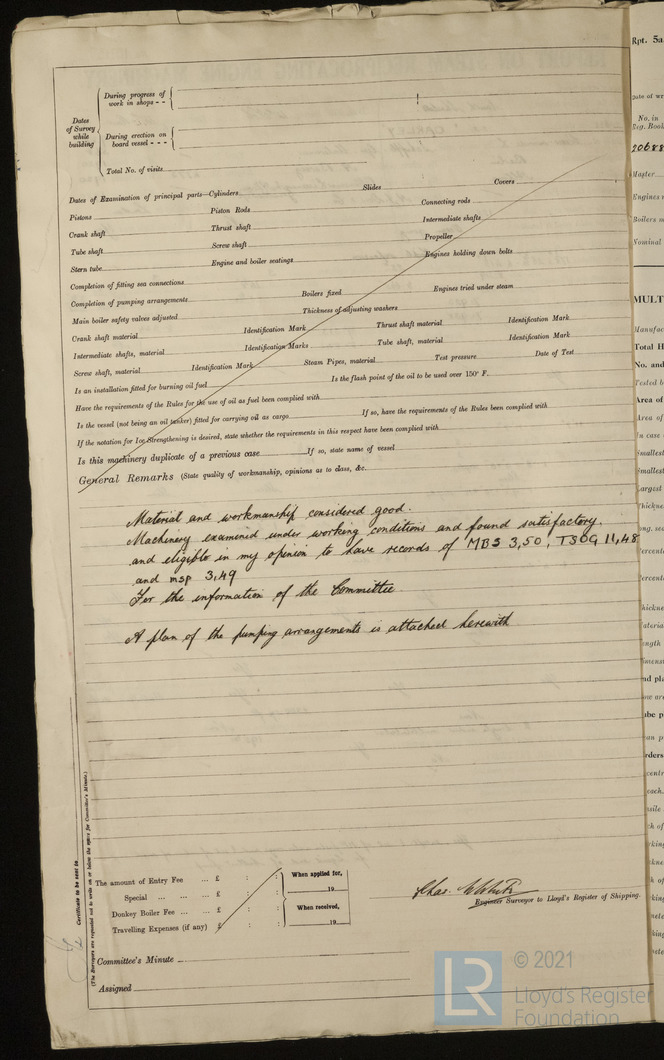 During progress of
work in shops - -
Dates
of Survey
while
building
During erection on
board vessel - - -
Total No. of visits
Dates of Examination of principal parts—Cylinders Slides Covers
Pistons Piston Rods Connecting rods
Crank shaft Thrust shaft Intermediate shafts
Tube shaft Screw shaft Propeller
Stern tube Engine and boiler seatings Engines holding down bolts
Completion of fitting sea connections
Completion of pumping arrangements Boilers fixed Engines tried under steam
Main boiler safety valves adjusted Thickness of adjusting washers
Crank shaft material Identification Mark Thrust shaft material Identification Mark
Intermediate shafts, material Identification Marks Tube shaft, material Identification Mark
Screw shaft, material Identification Mark Steam Pipes, material Test pressure Date of Test
Is an installation fitted for burning oil fuel Is the flash point of the oil to be used over 150° F.
Have the requirements of the Rules for the use of oil as fuel been complied with
Is the vessel (not being an oil tanker) fitted for carrying oil as cargo If so, have the requirements of the Rules been complied with
If the notation for Ice Strengthening is desired, state whether the requirements in this respect have been complied with
Is this machinery duplicate of a previous case If so, state name of vessel
General Remarks (State quality of workmanship, opinions as to class, &c.
Material and workmanship considered good.
Machinery examined under working conditions and found satisfactory.
and eligible in my opinion to have records of MBS 3,50, TSOG 11,48
and msp 3,49
For the information of the Committee
A plan of the pumping arrangements is attached herewith
Certificate to be sent to
(The Surveyors are requested not to write on or below the space for Committee's Minute.)
The amount of Entry Fee ... £ : :
Special ... ... ... £ : :
Donkey Boiler Fee ... ... £ : :
Travelling Expenses (if any) £ : :
When applied for,
19
When received,
19
Chas. W White
Engineer Surveyor to Lloyd's Register of Shipping.
Committee's Minute
Assigned
Rpt. 5a
No. in
Reg. Book
20688
Master
Engines
Boilers
Nominal
MULT
Total H
No. and
Area of
LR
© 2021
Lloyd's Register
Foundation